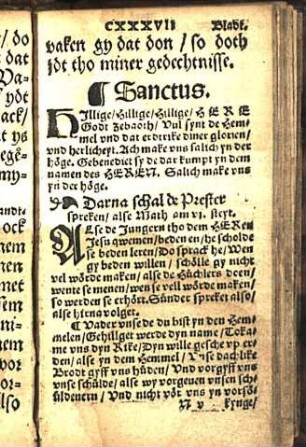 CXXXVII Bladt.
vaken gy dat don / so doth
ydt tho miner gedechtnisse.
¶ Sanctus.
Hillige / Hillige / Hillige / HERE
Godt Zebaoth / Vul synt de Hem-
mel vnd dat erdtrike diner glorien /
vnd herlicheyt. Ach make vns salich yn der
höge. Gebenediet sy de dat kumpt yn dem
namen des HEREN. Salich make vns
yn der höge.
Darna schal de Preester
spreken / alse Math am vi. steyt.
Alse de Jungern tho dem HEREn
Jesu qwemen / beden en / he scholde
se beden leren / Do sprack he / Wen
gy beden willen / schölle gy nicht
vel wörde maken / alse de Hüchlers doen /
wente se menen / wen se vell wörde maken /
so werden se erhört. Sünder spreket also /
alse hirna volget.
¶ Vader vnse de du bist yn den Hem-
melen / Gehilliget werde dyn name / Toka-
me vns dyn Rike / Dyn wille gesche vp er-
den / alse yn dem Hemmel / Vnse dachlike
Brodt gyff vns hüden / Vnd vorgyff vns
vnse schülde / alse wy vorgeuen vnsen sch-
üldenern / Vnd nicht vör vns yn vorsö-
kynge /